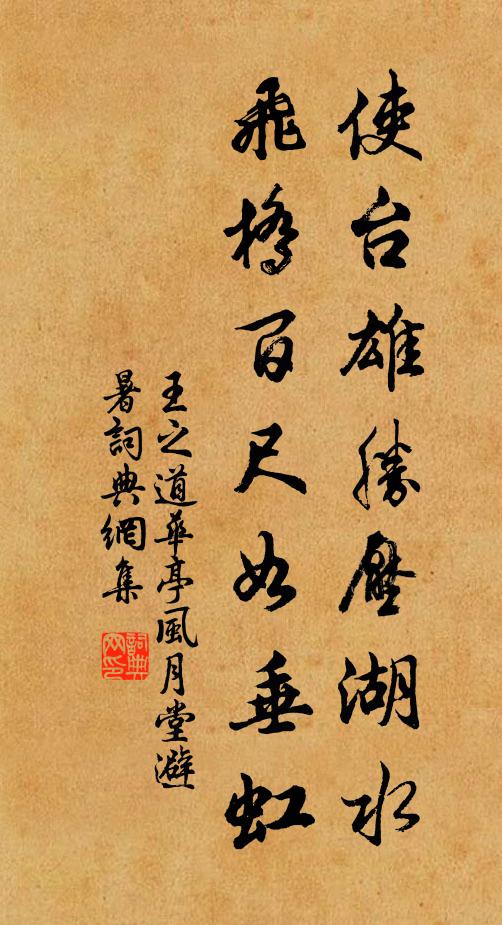 使台雄勝壓湖水
飛橋百尺如垂虹
王之道華亭風月堂避
暑詞典網集
詞典網印